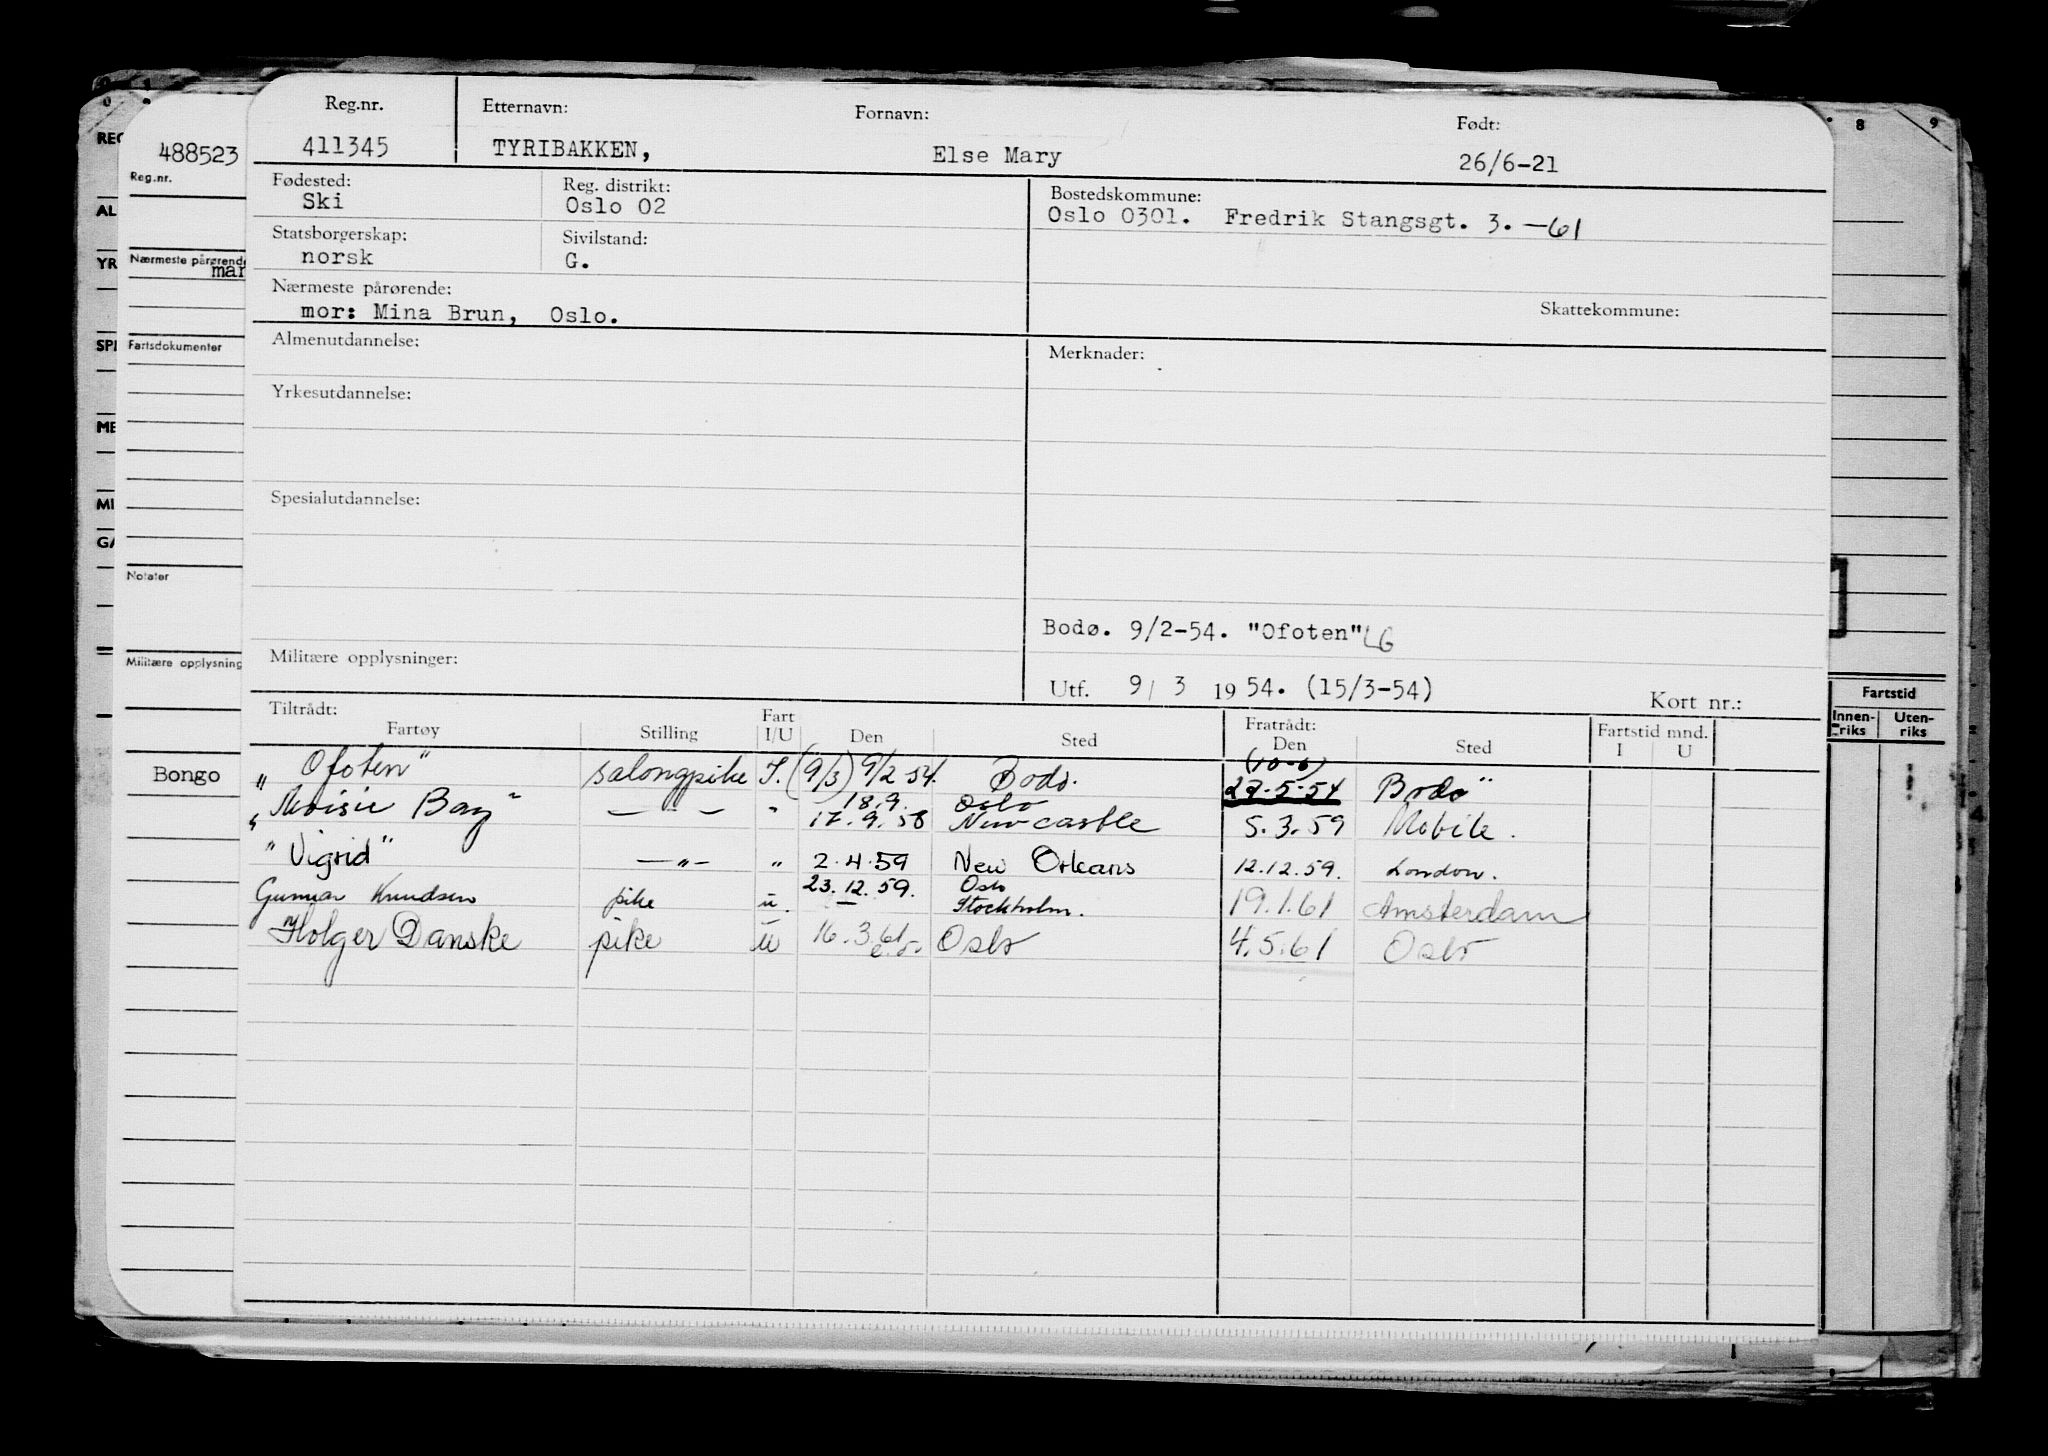 Reg.nr. Etternavn: Fornavn: Født:
411345 TYRIBAKKEN, Else Mary 26/6-21
Fødested: Reg. distrikt: Bostedskommune:
Ski Oslo 02 Oslo 0301. Fredrik Stangsgt. 3. —61
Statsborgerskap: Sivilstand:
norsk G.
Nærmeste pårørende: Skattekommune:
mor: Mina Brun, Oslo.
Almenutdannelse: Merknader:
Yrkesutdannelse:
Spesialutdannelse:
Bodø. 9/2-54. "Ofoten" LG
Militære opplysninger:
Utf. 9/3 1954. (15/3-54) Kort nr.:
Tiltrådt: Fratrådt:
Fartøy Stilling Fart I/U Den Sted Den Sted Fartstid mnd. I U
"Ofoten" salongpike I. (9/3) 9/2 54. Bodø. (10-6)
27-5-54 Bodø"
18.9. Oslo
"Moisie Bay" — " — " 17.9.58 Newcastle 5.3.59 Mobile.
"Vigrid" — " — " 2.4.59 New Orleans 12.12.59. London.
23.12.59. Oslo
Gunnar Knudsen pike u. — Stockholm. 19.1.61 Amsterdam
"Holger Danske pike u 16.3.61 Oslo 4.5.61 Oslo
488523
Reg.nr.
Nærmeste pårørende
mar
Fartsdokumenter
Notater
Militære opplysning
Bongo
REG
AL
YR
SPE
ME
MI
GA
8 9
Fartstid
Innen-riks Uten-riks